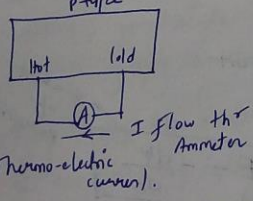 p-type
Hot Cold
A
I flow thr
Ammeter
Thermo-electric
current).